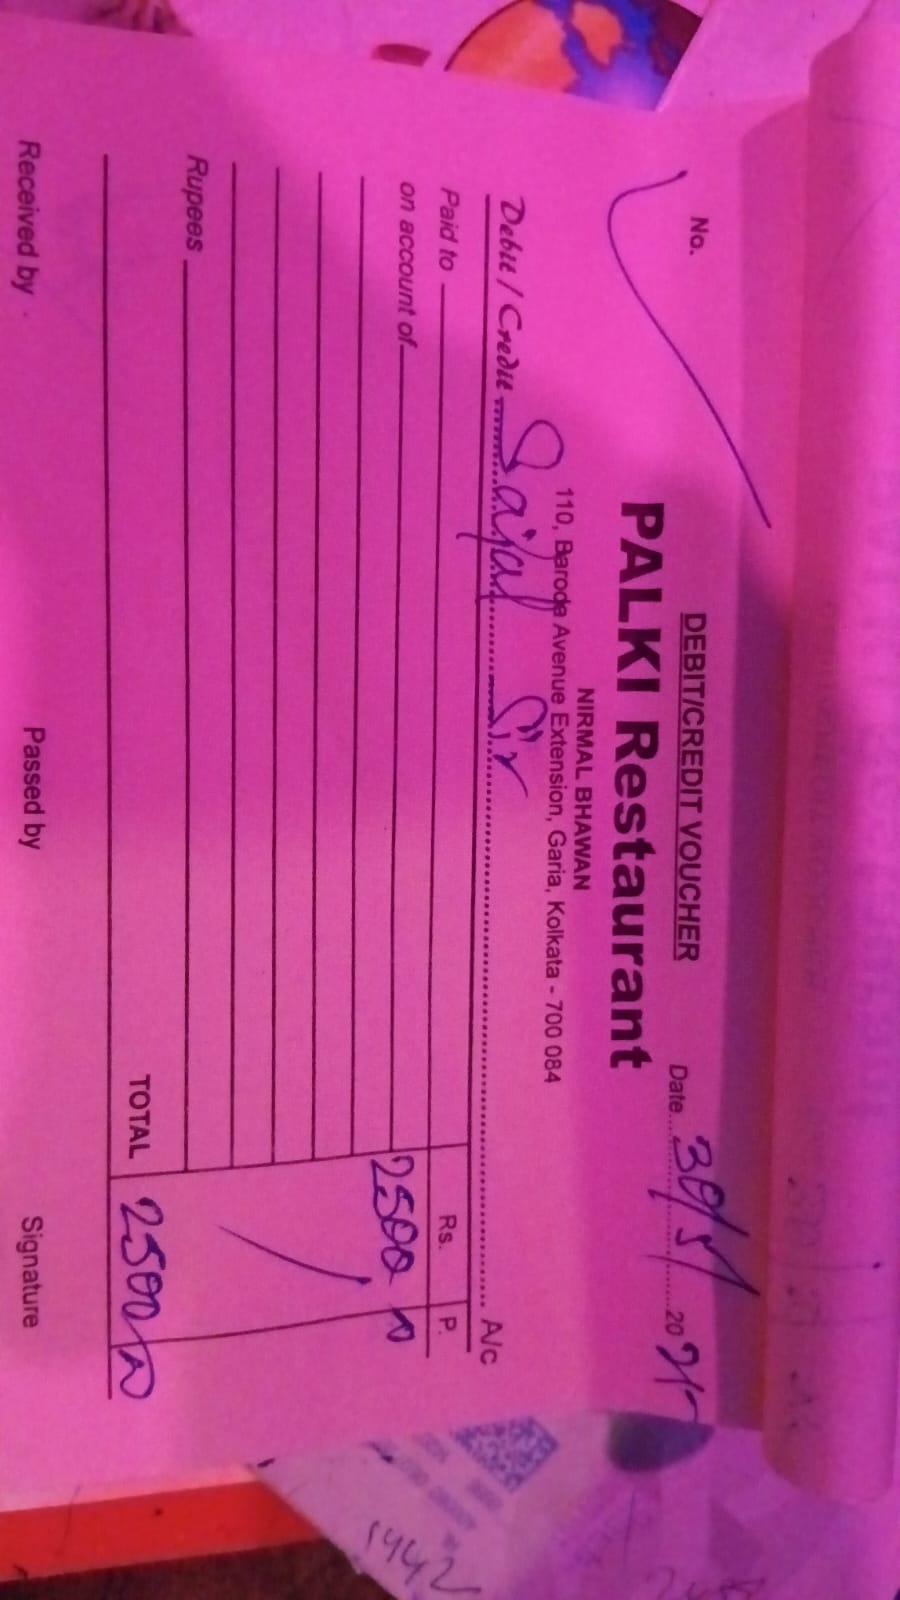 DEBIT/CREDIT VOUCHER
No. Date 30/5/ 20
PALKI Restaurant
NIRMAL BHAWAN
110, Baroda Avenue Extension, Garia, Kolkata - 700 084
Debit / Credit Sajal Sir A/c
Paid to Rs. P.
on account of 2500
Rupees
TOTAL 2500
Received by Passed by Signature
1442